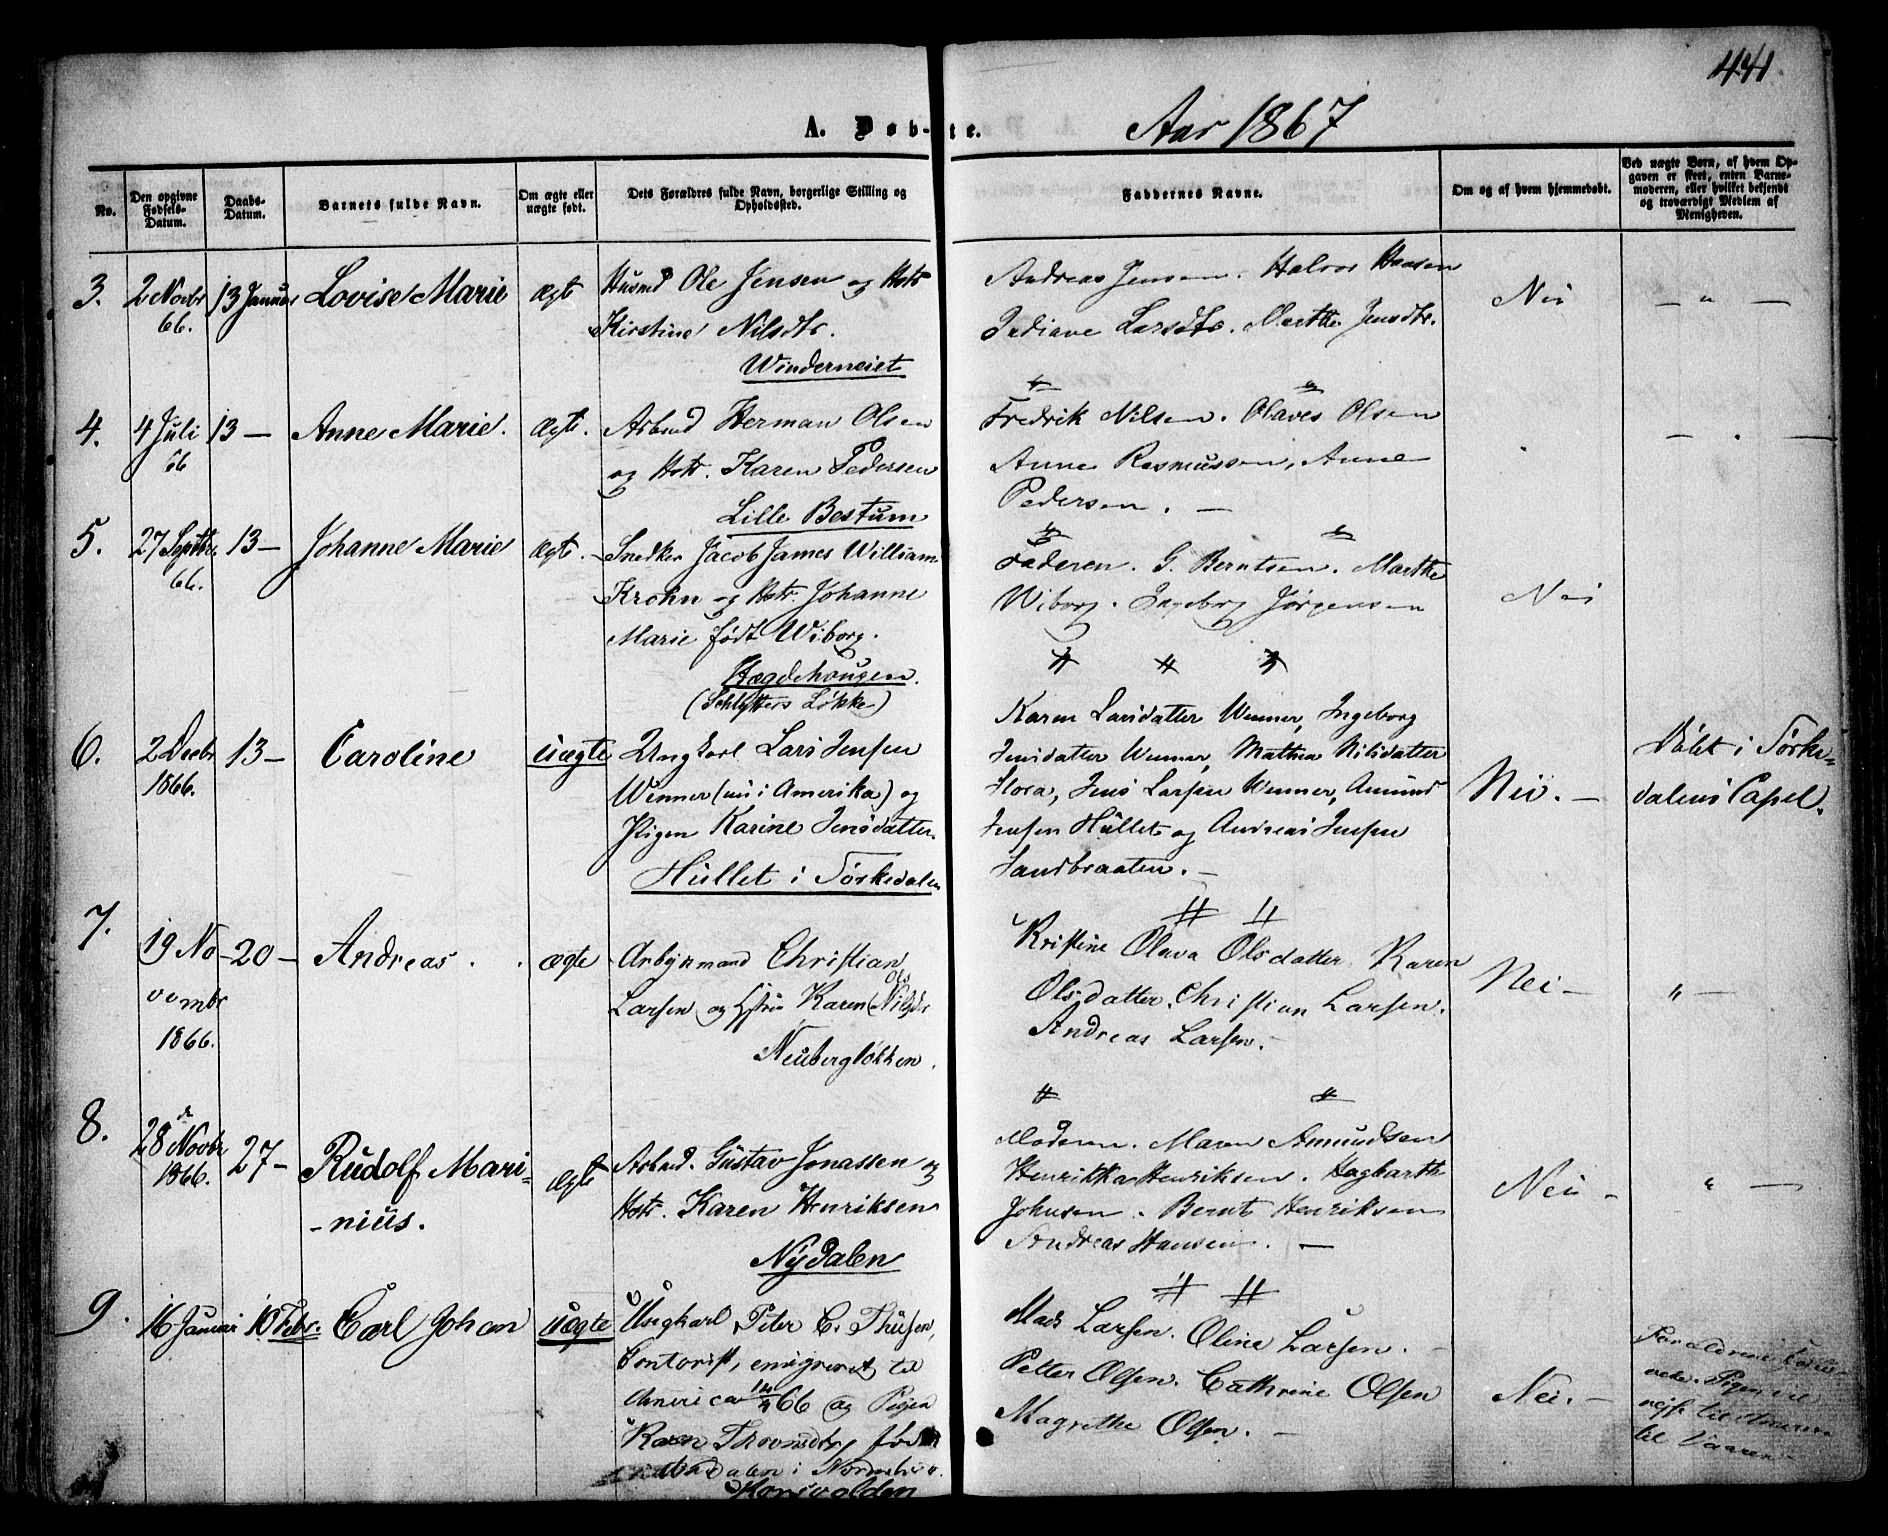 441
A. Døb-te.
Aar 1867
No.
Den opgivne Fødsels-Datum.
Daabs-Datum.
Barnets fulde Navn.
Om ægte eller uægte født.
Dets Forældres fulde Navn, borgerlige Stilling og Opholdssted.
Faddernes Navne.
Om og af hvem hjemmedøbt.
Ved uægte Børn, af hvem Opgaven er skeet, enten Barnemoderen, eller hvilket bekjendt og troværdigt Medlem af Menigheden.
3.
2 Novbr
66.
13 Januar
Lovise Marie
ægte
Husmd Ole Jensen og Hstr
Kirstine Nilsdtr.
Winderneiet
Andreas Jensen. Halvor Hansen
Larsdtr. Marthe Jensdtr.
Nei
— " —
4.
4 Juli
66
13 —
Anne Marie.
ægte.
Arbmd Herman Olsen
og Hstr. Karen Pedersen
Lille Bestum
Fredrik Nilsen. Olaves Olsen
Anne Rasmussen, Anne
Pedersen. —
— . —
5.
27 Septbr
66.
13 —
Johanne Marie
ægte.
Snedker Jacob James William
Krohn og Hstr. Johanne
Marie født Wiborg.
Hægdehougen.
(Schlytters Løkke)
Faderen. G. Berntsen. Marthe
Wiborg. Ingeborg Jørgensen
Nei
6.
2 Decbr
1866.
13 —
Caroline
uægte
Ungkarl Lars Jensen
Wenner (nu i Amerika) og
Pigen Karine Jensdatter.
Hullet i Sørkedalen
Karen Larsdatter Wenner, Ingeborg
Jensdatter Wenner, Mathea Nilsdatter
Jens Larsen Wenner, Amund
Jensen Hullet og Andreas Jensen
Sandbraaten. —
Nei. —
Døbt i Sørke=
dalens Capel.
7.
19 No-
vembr
1866.
20 —
Andreas.
ægte
Arbejdsmand Christian
Larsen og Hstru Karen Nilsdr
Ols
Neubergløkken.
Kristine Olava Olsdatter. Karen
Olsdatter. Christian Larsen.
Andreas Larsen. —
Nei —
" —
8.
28de Novbr
1866.
27 —
Rudolf Mari-
-nius.
ægte
Arbmd. Gustav Jonassen og
Hstr. Karen Henriksen
Nydalen
Moderen. Maren Amundsen
Henrikka Henriksen. Hagbarth
Johnsen. Bernt Henriksen
Andreas Hansen. —
Nei —
" —
9.
16 Januar
10 Febr.
Carl Johan
uægte
Ungkarl Peter C. Thusen,
Contorist, emigreret til
America 66 og Pigen
Karen
Mads Larsen. Oline Larsen. —
Petter Olsen. Cathrine Olsen
Magrethe Olsen. —
Nei. —
Forældrene
Pigen vil
rejse til America
til Vaaren —